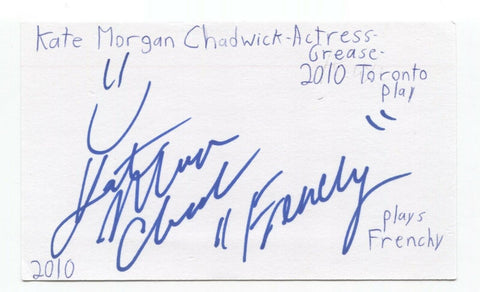 Kate Morgan Chadwick-Actress-
Grease-
2010 Toronto
play
Kate Morgan
Chad
"Frenchy"
plays
Frenchy
2010